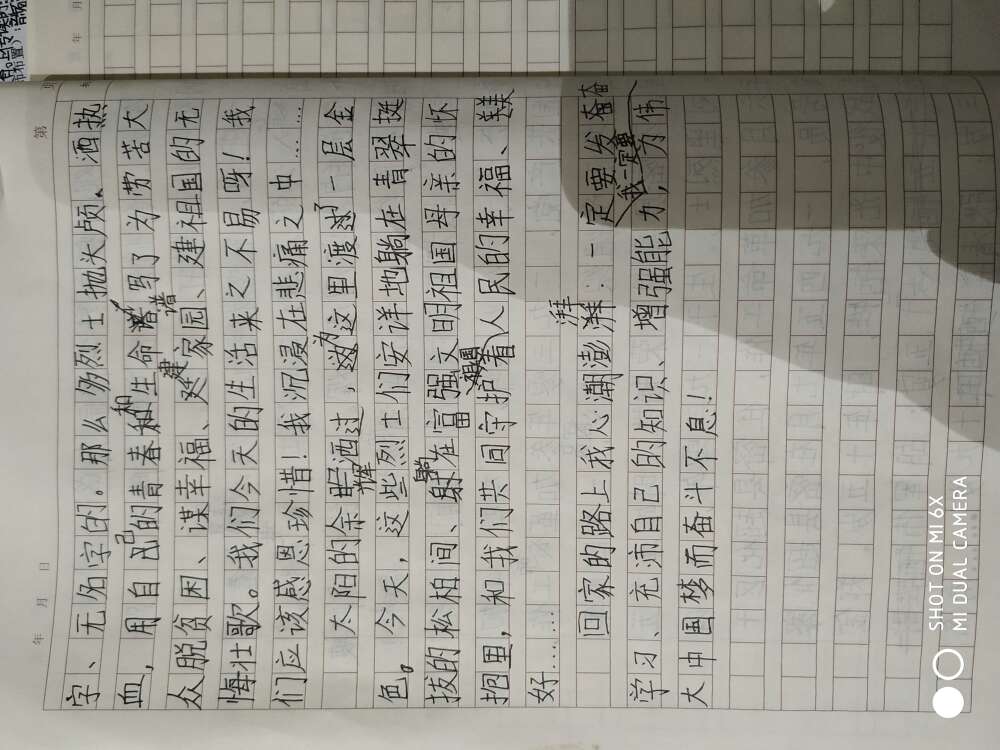 第 页
年 月 日
字、无名字的。那么多烈士抛头颅、洒热
血,用自己的青春和生命谱写了为劳苦大
众脱贫困、谋幸福、建家园、建祖国的无
悔壮歌。我们今天的生活来之不易呀!我
们应该感恩珍惜!我沉浸在悲痛之中……
太阳的余晖洒过,为这里渡过了一层金
色。今天,这些烈士们安详地躺在青翠挺
拔的松柏间、躺在富强文明祖国母亲的怀
抱里,和我们共同守护着人民的幸福、美
好……
回家的路上我心潮澎湃:一定要发奋
学习、充沛自己的知识、增强能力,我一定要为伟
大中国梦而奋斗不息!
SHOT ON MI 6X
MI DUAL CAMERA